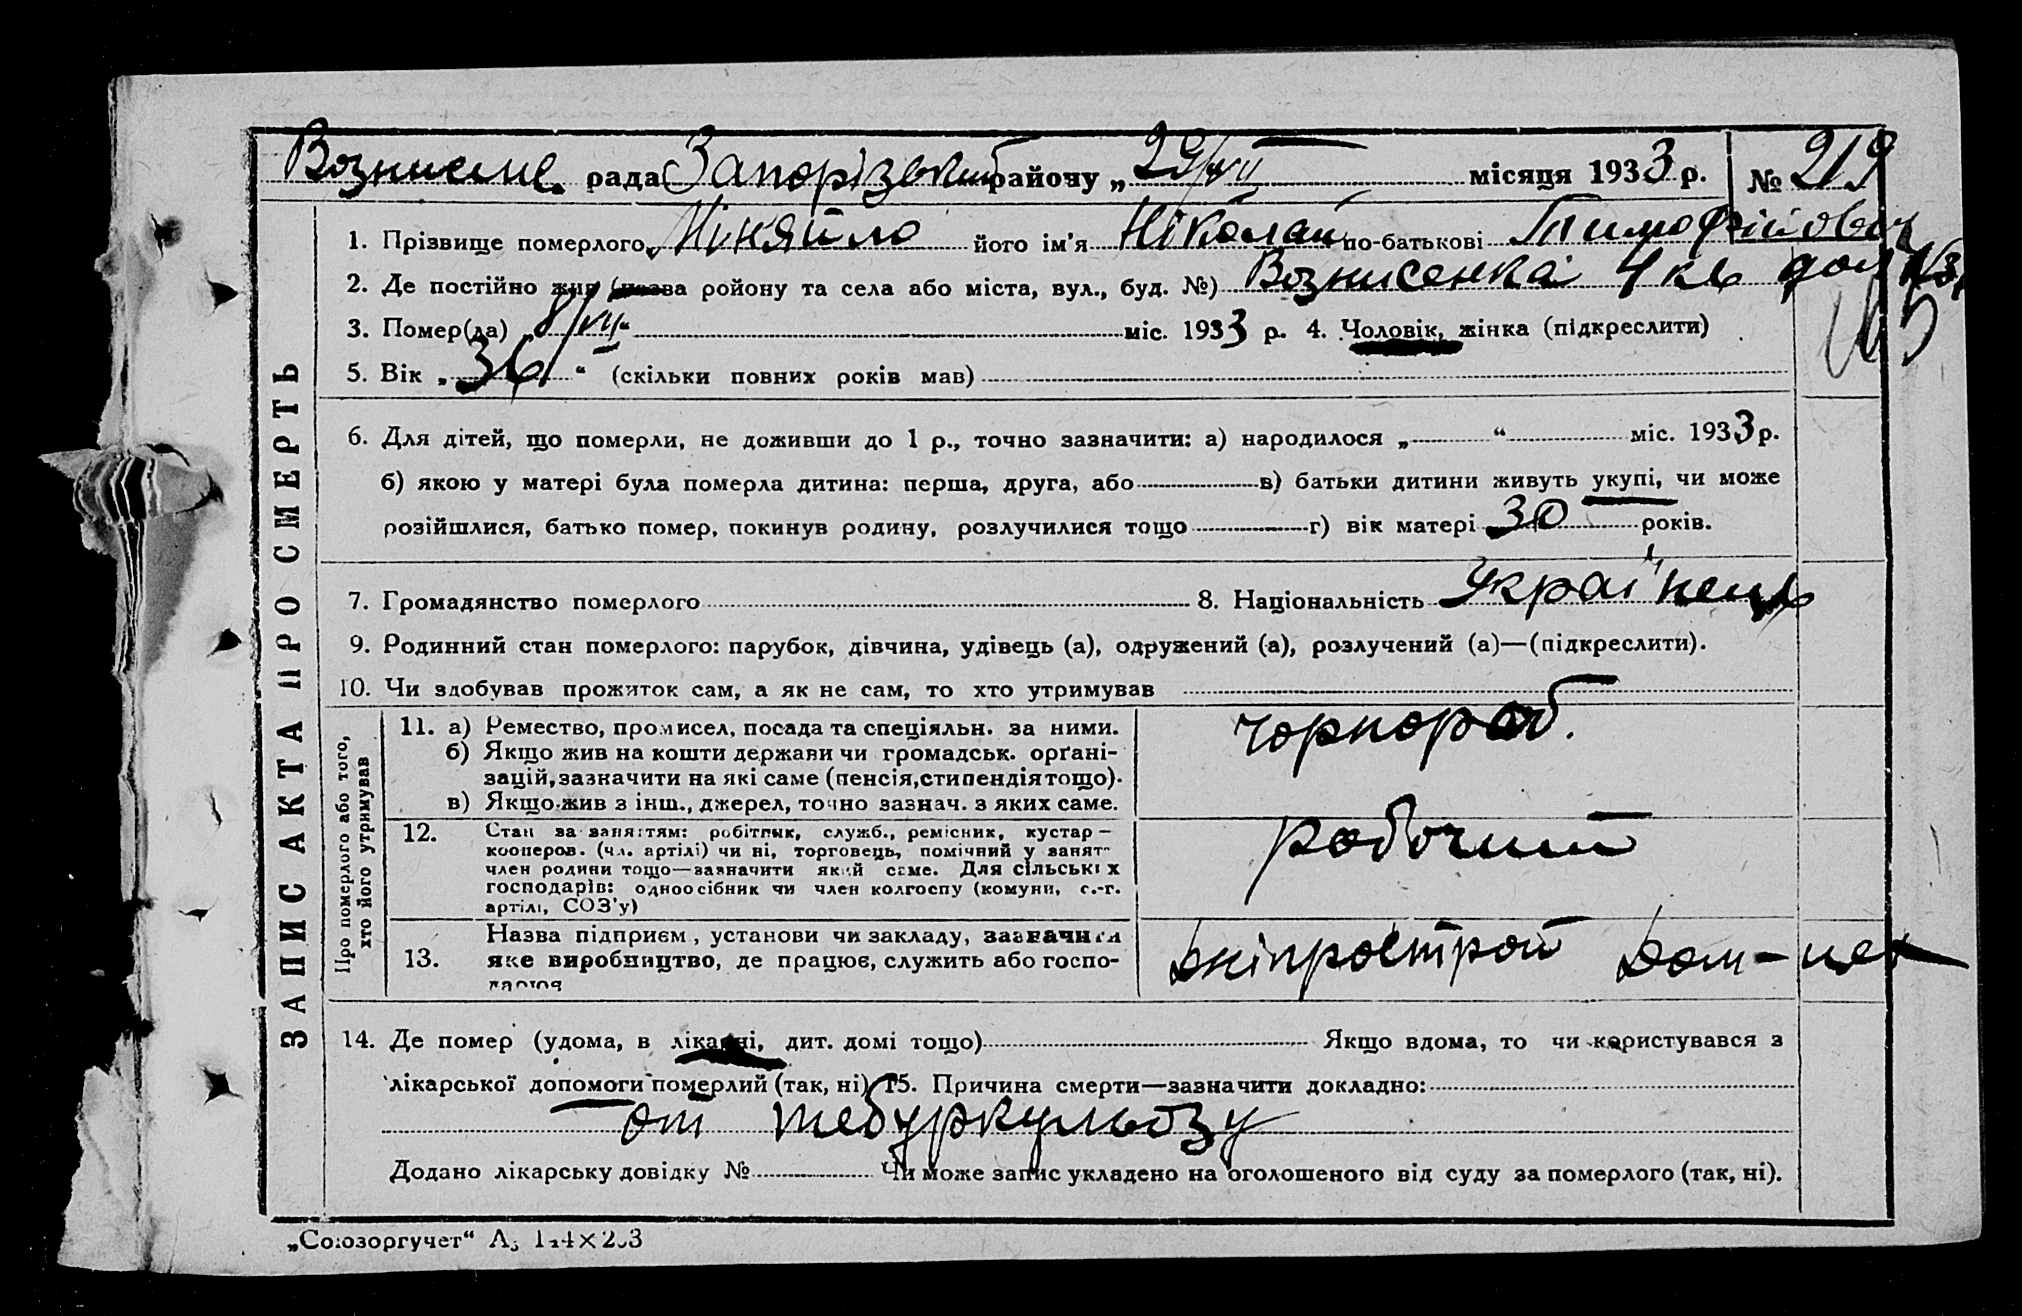 Вознисене. рада Запорізький району „29/VII місяця 1933 р. № 219
1. Прізвище померлого Міняйло його ім’я Ніколай по-батькові Тимофійович
2. Де постійно жив (назва ройону та села або міста, вул., буд. №) Вознисенка 4 кв дом №
3. Помер(ла) „8/VII“ міс. 1933 р. 4. Чоловік, жінка (підкреслити)
5. Вік „36“ (скільки повних років мав)
6. Для дітей, що померли, не доживши до 1 р., точно зазначити: а) народилося „ “ міс. 1933 р.
б) якою у матері була померла дитина: перша, друга, або в) батьки дитини живуть укупі, чи може
розійшлися, батько помер, покинув родину, розлучилися тощо г) вік матері 30 років.
7. Громадянство померлого 8. Національність Українець
9. Родинний стан померлого: парубок, дівчина, удівець (а), одружений (а), розлучений (а)—(підкреслити).
10. Чи здобував прожиток сам, а як не сам, то хто утримував
ЗАПИС АКТА ПРО СМЕРТЬ
Про померлого або того,
хто його утримував
11. а) Ремество, промисел, посада та спеціяльн. за ними.
б) Якщо жив на кошти держави чи громадськ. орґані-
зацій, зазначити на які саме (пенсія, стипендія тощо).
в) Якщо жив з інш., джерел, точно зазнач. з яких саме.
чорнораб.
12. Стан за заняттям: робітник, служб., ремісник, кустар —
кооперов. (чл. артілі) чи ні, торговець, помічний у занятт
член родини тощо—зазначити який саме. Для сільських
господарів: одноосібник чи член колгоспу (комуни, с.-г.
артілі, СОЗ’у)
робочий
13. Назва підприєм, установи чи закладу, зазначити
яке виробництво, де працює, служить або госпо-
дарює
Дніпрострой Дом-цех
14. Де помер (удома, в лікарні, дит. домі тощо) Якщо вдома, то чи користувався з
лікарської допомоги померлий (так, ні) 15. Причина смерти—зазначити докладно:
от тебуркульозу
Додано лікарську довідку № Чи може запис укладено на оголошеного від суду за померлого (так, ні).
„Союзоргучет“